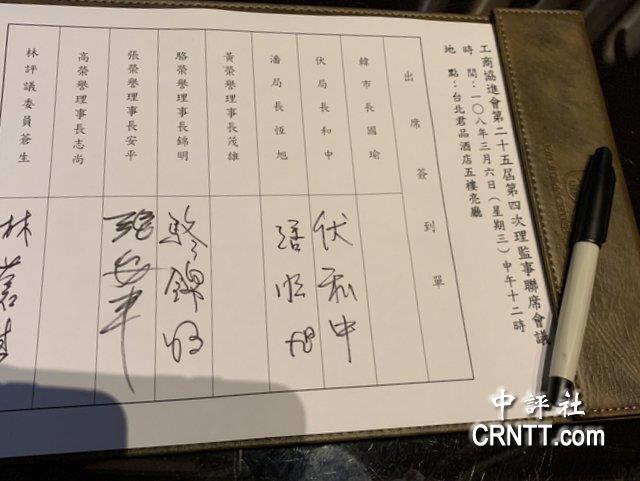 工商協進會第二十五屆第四次理監事聯席會議
時間：一〇八年三月六日（星期三）中午十二時
地點：台北君品酒店五樓亮廳
出席簽到單
韓市長國瑜
伏局長和中
伏和中
潘局長恆旭
潘恆旭
黃榮譽理事長茂雄
駱榮譽理事長錦明
駱錦明
張榮譽理事長安平
張安平
高榮譽理事長志尚
林評議委員蒼生
林蒼生
中評社
CRNTT.com